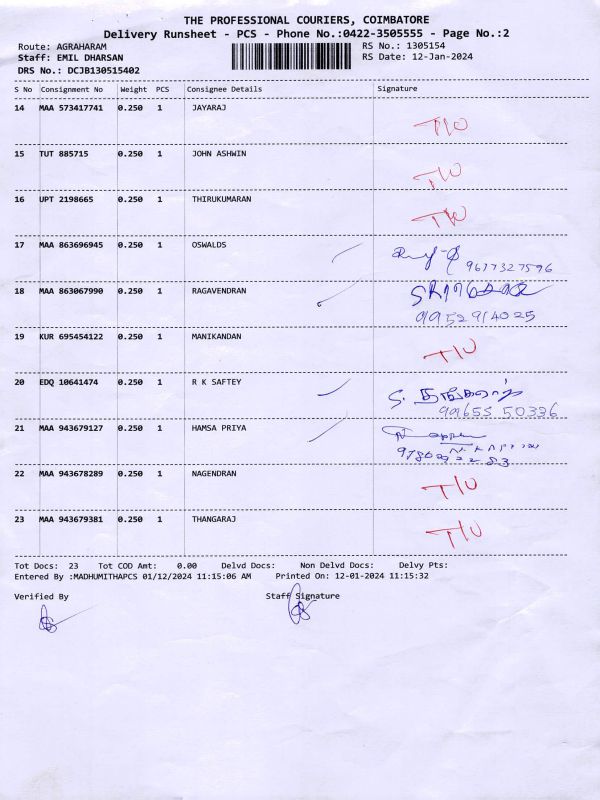 THE PROFESSIONAL COURIERS, COIMBATORE
Delivery Runsheet - PCS - Phone No.:0422-3505555 - Page No.:2
Route: AGRAHARAM RS No.: 1305154
Staff: EMIL DHARSAN RS Date: 12-Jan-2024
DRS No.: DCJB130515402
S No Consignment No Weight PCS Consignee Details Signature
14 MAA 573417741 0.250 1 JAYARAJ T/O
15 TUT 885715 0.250 1 JOHN ASHWIN T/O
16 UPT 2198665 0.250 1 THIRUKUMARAN T/O
17 MAA 863696945 0.250 1 OSWALDS
9677327596
18 MAA 863067990 0.250 1 RAGAVENDRAN
9952914025
19 KUR 695454122 0.250 1 MANIKANDAN T/O
20 EDQ 10641474 0.250 1 R K SAFTEY
99655 50336
21 MAA 943679127 0.250 1 HAMSA PRIYA
22 MAA 943678289 0.250 1 NAGENDRAN T/O
23 MAA 943679381 0.250 1 THANGARAJ T/O
Tot Docs: 23 Tot COD Amt: 0.00 Delvd Docs: Non Delvd Docs: Delvy Pts:
Entered By :MADHUMITHAPCS 01/12/2024 11:15:06 AM Printed On: 12-01-2024 11:15:32
Verified By Staff Signature